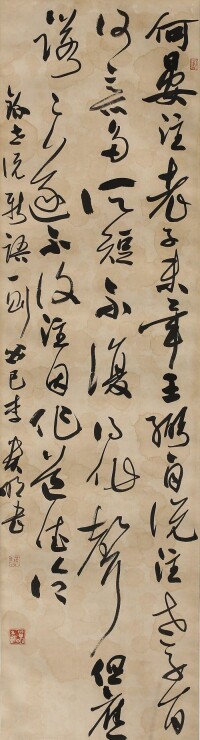 何晏注老子未畢王弼自說注老子旨
何意多所短不復得作聲但應
諾々遂不復注因作道德論
錄世說新語一則癸巳李明書